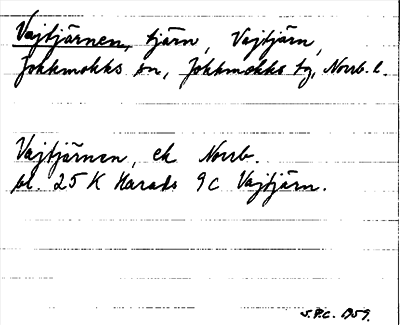 Vajtjärnen, tjärn, Vajtjärn,
Jokkmokks sn, Jokkmokks tg, Norrb. l.
Vajtjärnen, ek Norrb.
bl. 25 K Harads 9 c Vajtjärn.
S.P.C. 1959.